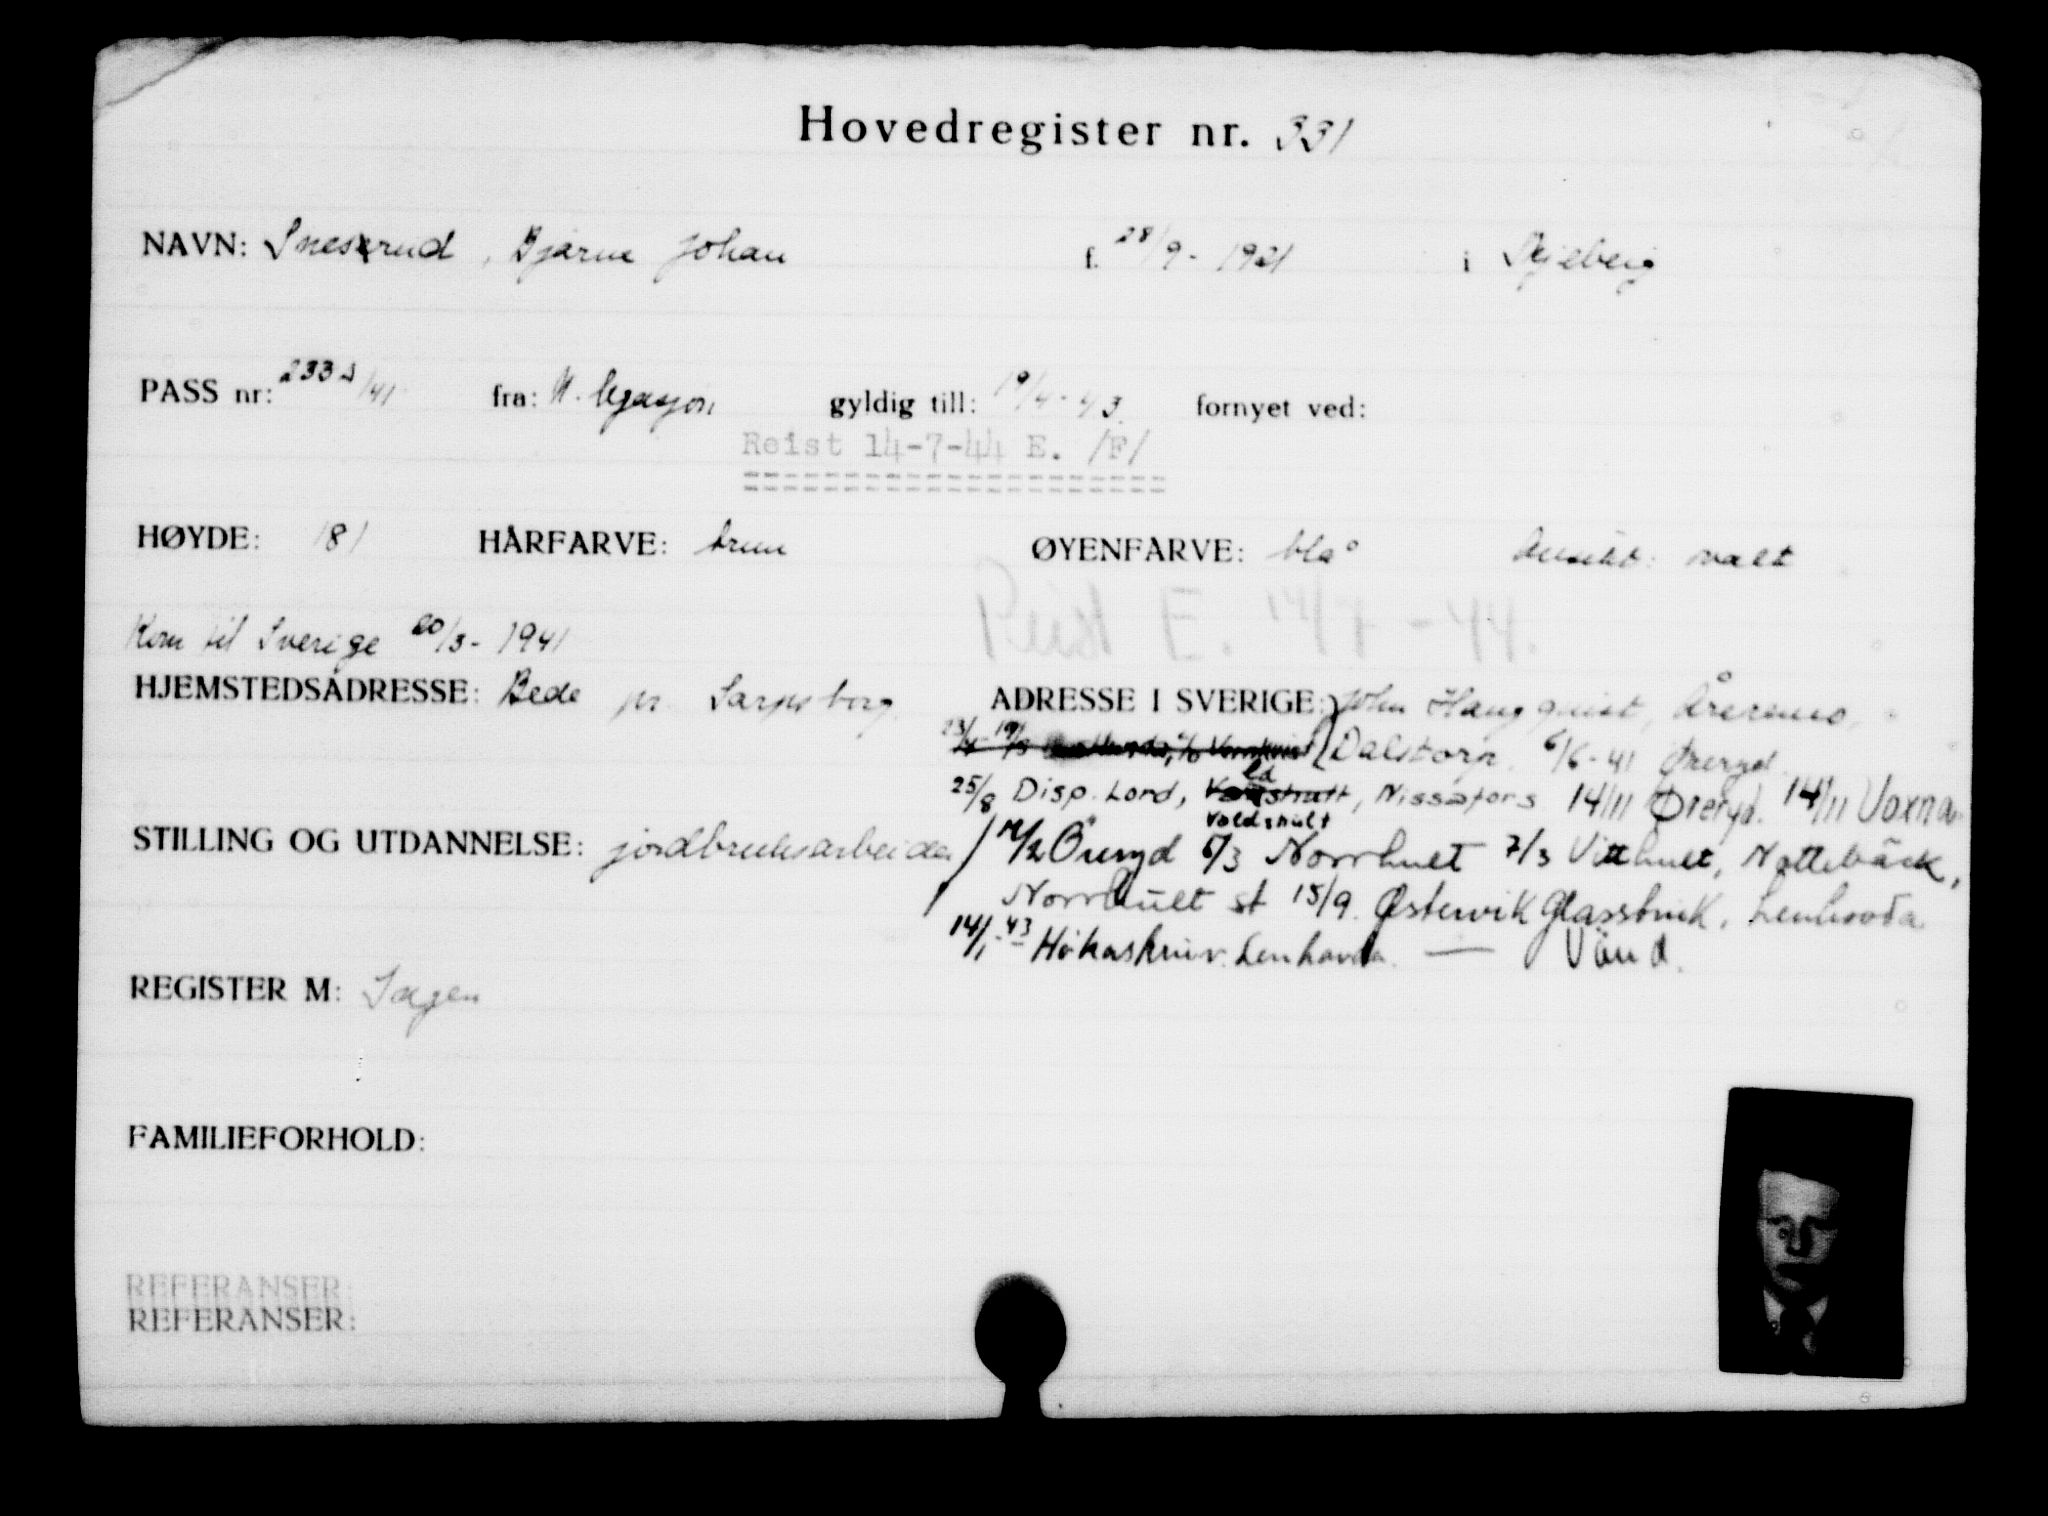 Hovedregister nr. 331
NAVN: Sneserud, Bjarne Johan f. 28/9 - 1921 i Skjeberg
PASS nr: 233 /41 fra: N. legasjon gyldig till: 19/4 - 43 fornyet ved:
Reist 14-7-44 E. /F/
HØYDE: 181 HÅRFARVE: brun ØYENFARVE: blå Ansikt: ovalt
Reist E. 14/7 - 44.
Kom til Sverige 20/3 - 1941
HJEMSTEDSADRESSE: Bede pr. Sarpsborg. ADRESSE I SVERIGE: John
Dalstorp. 6/6 - 41 Øreryd.
25/8 Disp. Lord, Nissafors 14/11 Øreryd. 14/11 Voxna
Valdshult
STILLING OG UTDANNELSE: jordbruksarbeider
14/2 Öreryd 6/3 Norrhult 7/3 Vitthult, Nottebäck,
Norrhult st 15/9. Østervik Glassbruk. Lenhovda
14/1 - 43 Hökaskruv. Lenhovda. — Vänd.
REGISTER M: Sagen
FAMILIEFORHOLD:
REFERANSER:
REFERANSER: